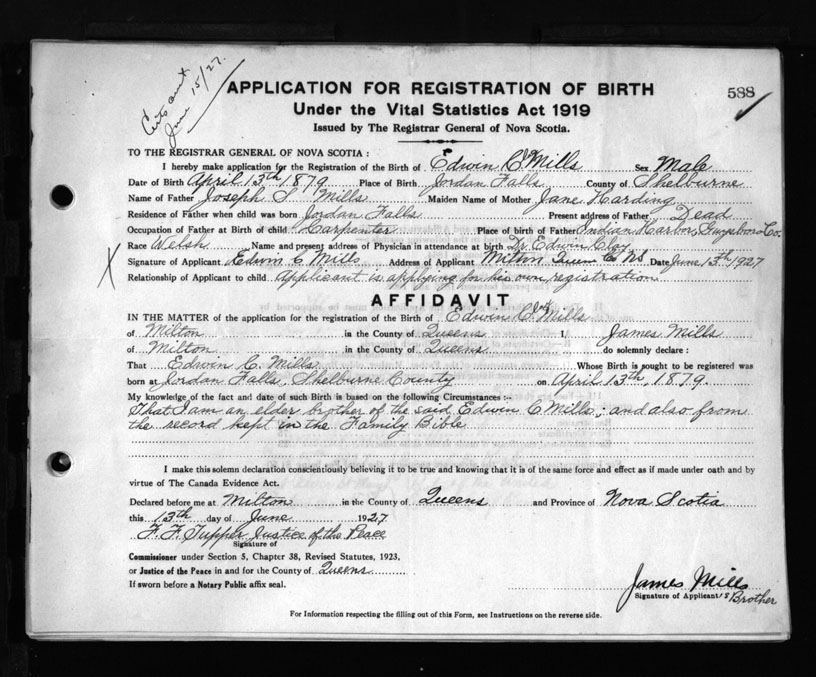 Certs sent
June 15/27.
APPLICATION FOR REGISTRATION OF BIRTH
588
Under the Vital Statistics Act 1919
Issued by The Registrar General of Nova Scotia.
TO THE REGISTRAR GENERAL OF NOVA SCOTIA :
I hereby make application for the Registration of the Birth of Edwin C Mills Sex Male
Date of Birth April 13th 1879 Place of Birth Jordan Falls County of Shelburne
Name of Father Joseph S Mills Maiden Name of Mother Jane Harding
Residence of Father when child was born Jordan Falls Present address of Father Dead
Occupation of Father at Birth of child Carpenter Place of birth of Father Indian Harbor, Guysboro Co.
Race Welsh Name and present address of Physician in attendance at birth Dr Edwin Clay
Signature of Applicant Edwin C Mills Address of Applicant Milton Queens Co NS. Date June 13th 1927
Relationship of Applicant to child Applicant is applying for his own registration
AFFIDAVIT
IN THE MATTER of the application for the registration of the Birth of Edwin C Mills
of Milton in the County of Queens I, James Mills
of Milton in the County of Queens do solemnly declare :
That Edwin C. Mills Whose Birth is sought to be registered was
born at Jordan Falls, Shelburne County on April 13th, 1879.
My knowledge of the fact and date of such Birth is based on the following Circumstances :-
That I am an elder brother of the said Edwin C Mills; and also from
the record kept in the Family Bible
I make this solemn declaration conscientiously believing it to be true and knowing that it is of the same force and effect as if made under oath and by
virtue of The Canada Evidence Act.
Declared before me at Milton in the County of Queens and Province of Nova Scotia
this 13th day of June 1927
F. F. Tupper Justice of the Peace
Signature of
Commissioner under Section 5, Chapter 38, Revised Statutes, 1923.
or Justice of the Peace in and for the County of Queens
If sworn before a Notary Public affix seal.
James Mills
Signature of Applicant's Brother
For Information respecting the filling out of this Form, see Instructions on the reverse side.